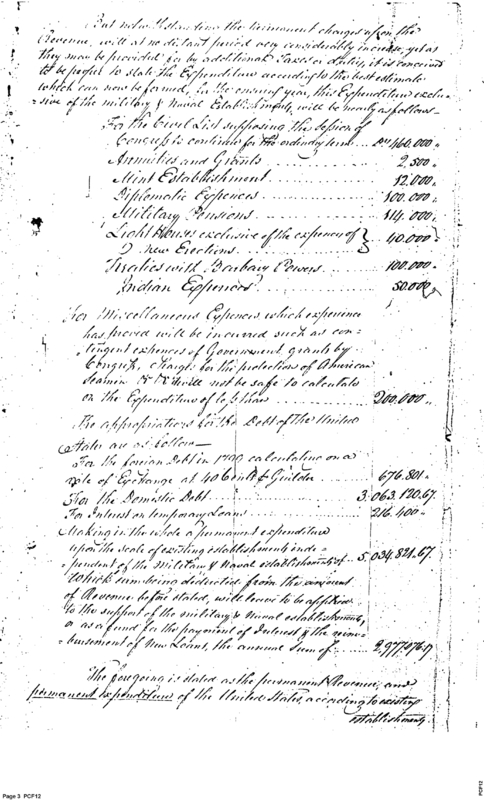 But notwithstanding the permanent charges upon the
Revenue, will at no distant period very considerably increase, yet as
they may be provided for by additional Taxes or duties, it is conceived
to be proper to state the Expenditure according to the best estimate
which can now be formed, in the ensuing year, this Expenditure exclu-
sive of the military & Naval Establishments, will be nearly as follows—
For the Civil List supposing the Session of
Congress to continue for the ordinary term... 460.000"
Annuities and Grants ........ 2.500"
Mint Establishment ........ 12.000"
Diplomatic Expences ........ 100.000"
Military Pensions ........ 114.000"
Light Houses exclusive of the expences of } 40.000"
new Erections ........
Treaties with Barbary Powers ........ 100.000"
Indian Expences ........ 50.000
For Miscellaneous Expences which experience
has proved will be incurred such as con-
tingent expences of Government, grants by
Congress, charges for the protection of American
Seamen &c &c it will not be safe to calculate
on the Expenditure of less than ........ 200.000"
The appropriations for the Debt of the United
States are as follow—
For the foreign Debt in 1799 calculating on a
rate of Exchange at 40 Cents Guilder ........ 676.801"
For the Domestic Debt ........ 3.063.120.67
For Interest on temporary Loans ........ 216.400"
Making in the whole a permanent expenditure
upon the scale of existing establishments inde-
pendent of the military & Naval establishments of 5.034.821.67.
which sum being deducted from the amount
of Revenue before stated, will leave to be applied
to the support of the military & Naval establishments,
or as a fund for the payment of Interest & the reim-
bursement of New Loans, the annual Sum of 2.977.076.17
The foregoing is stated as the permanent Revenue, and
permanent expenditure of the United States, according to existing
establishments
Page 3 PCF12
PCF12